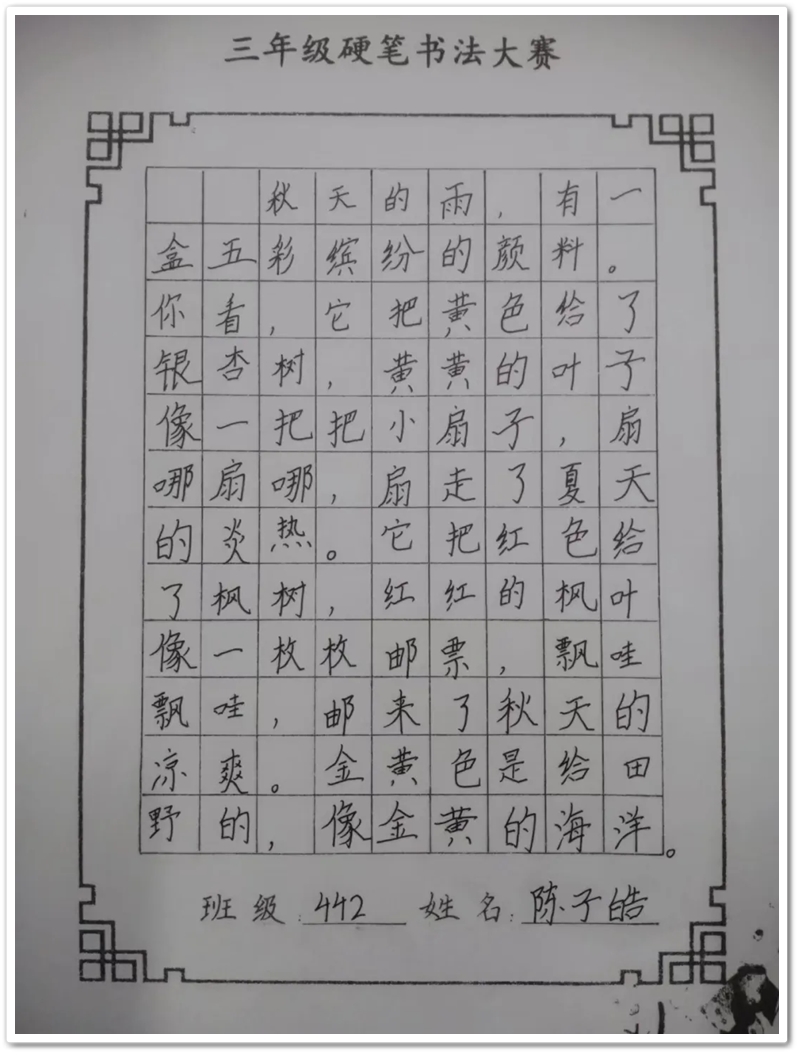 三年级硬笔书法大赛
秋天的雨，有一
盒五彩缤纷的颜料。
你看，它把黄色给了
银杏树，黄黄的叶子
像一把把小扇子，扇
哪扇哪，扇走了夏天
的炎热。它把红色给
了枫树，红红的枫叶
像一枚枚邮票，飘哇
飘哇，邮来了秋天的
凉爽。金黄色是给田
野的，像金黄的海洋。
班级:442 姓名:陈子皓